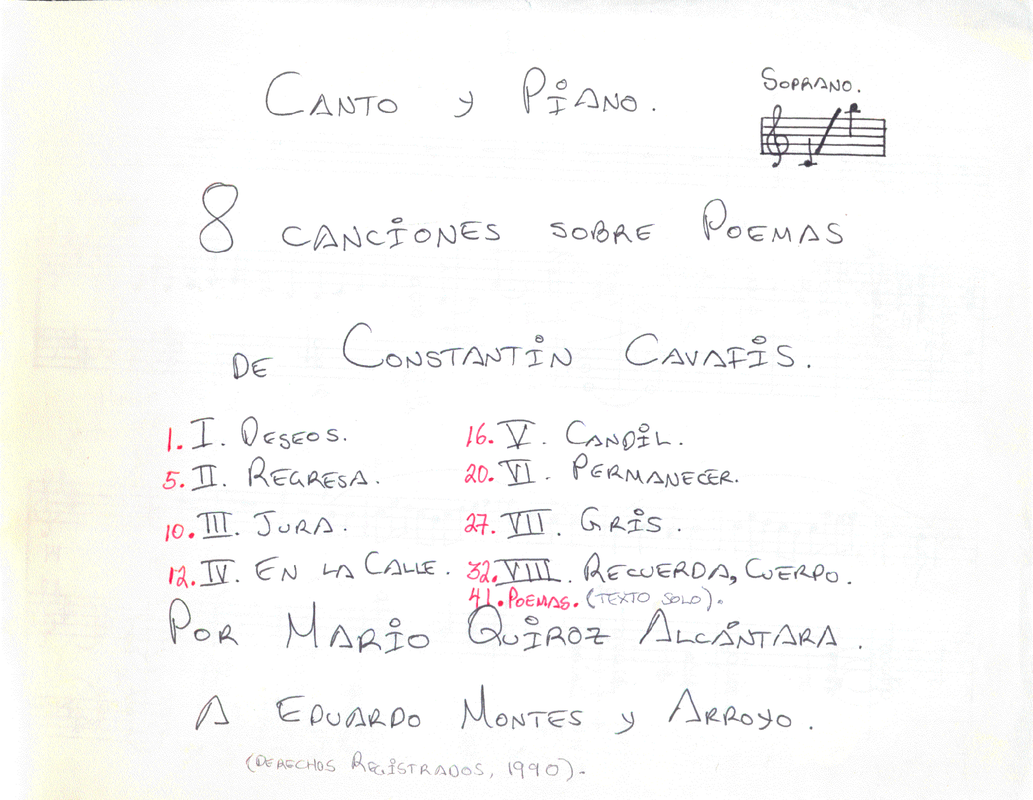 Canto y Piano.
Soprano.
8 canciones sobre Poemas
de Constantin Cavafis.
1. I. Deseos.
5. II. Regresa.
10. III. Jura.
12. IV. En la Calle.
16. V. Candil.
20. VI. Permanecer.
27. VII. Gris.
32. VIII. Recuerda, Cuerpo.
41. Poemas. (texto solo).
Por Mario Quiroz Alcántara.
A Eduardo Montes y Arroyo.
(Derechos Registrados, 1990).